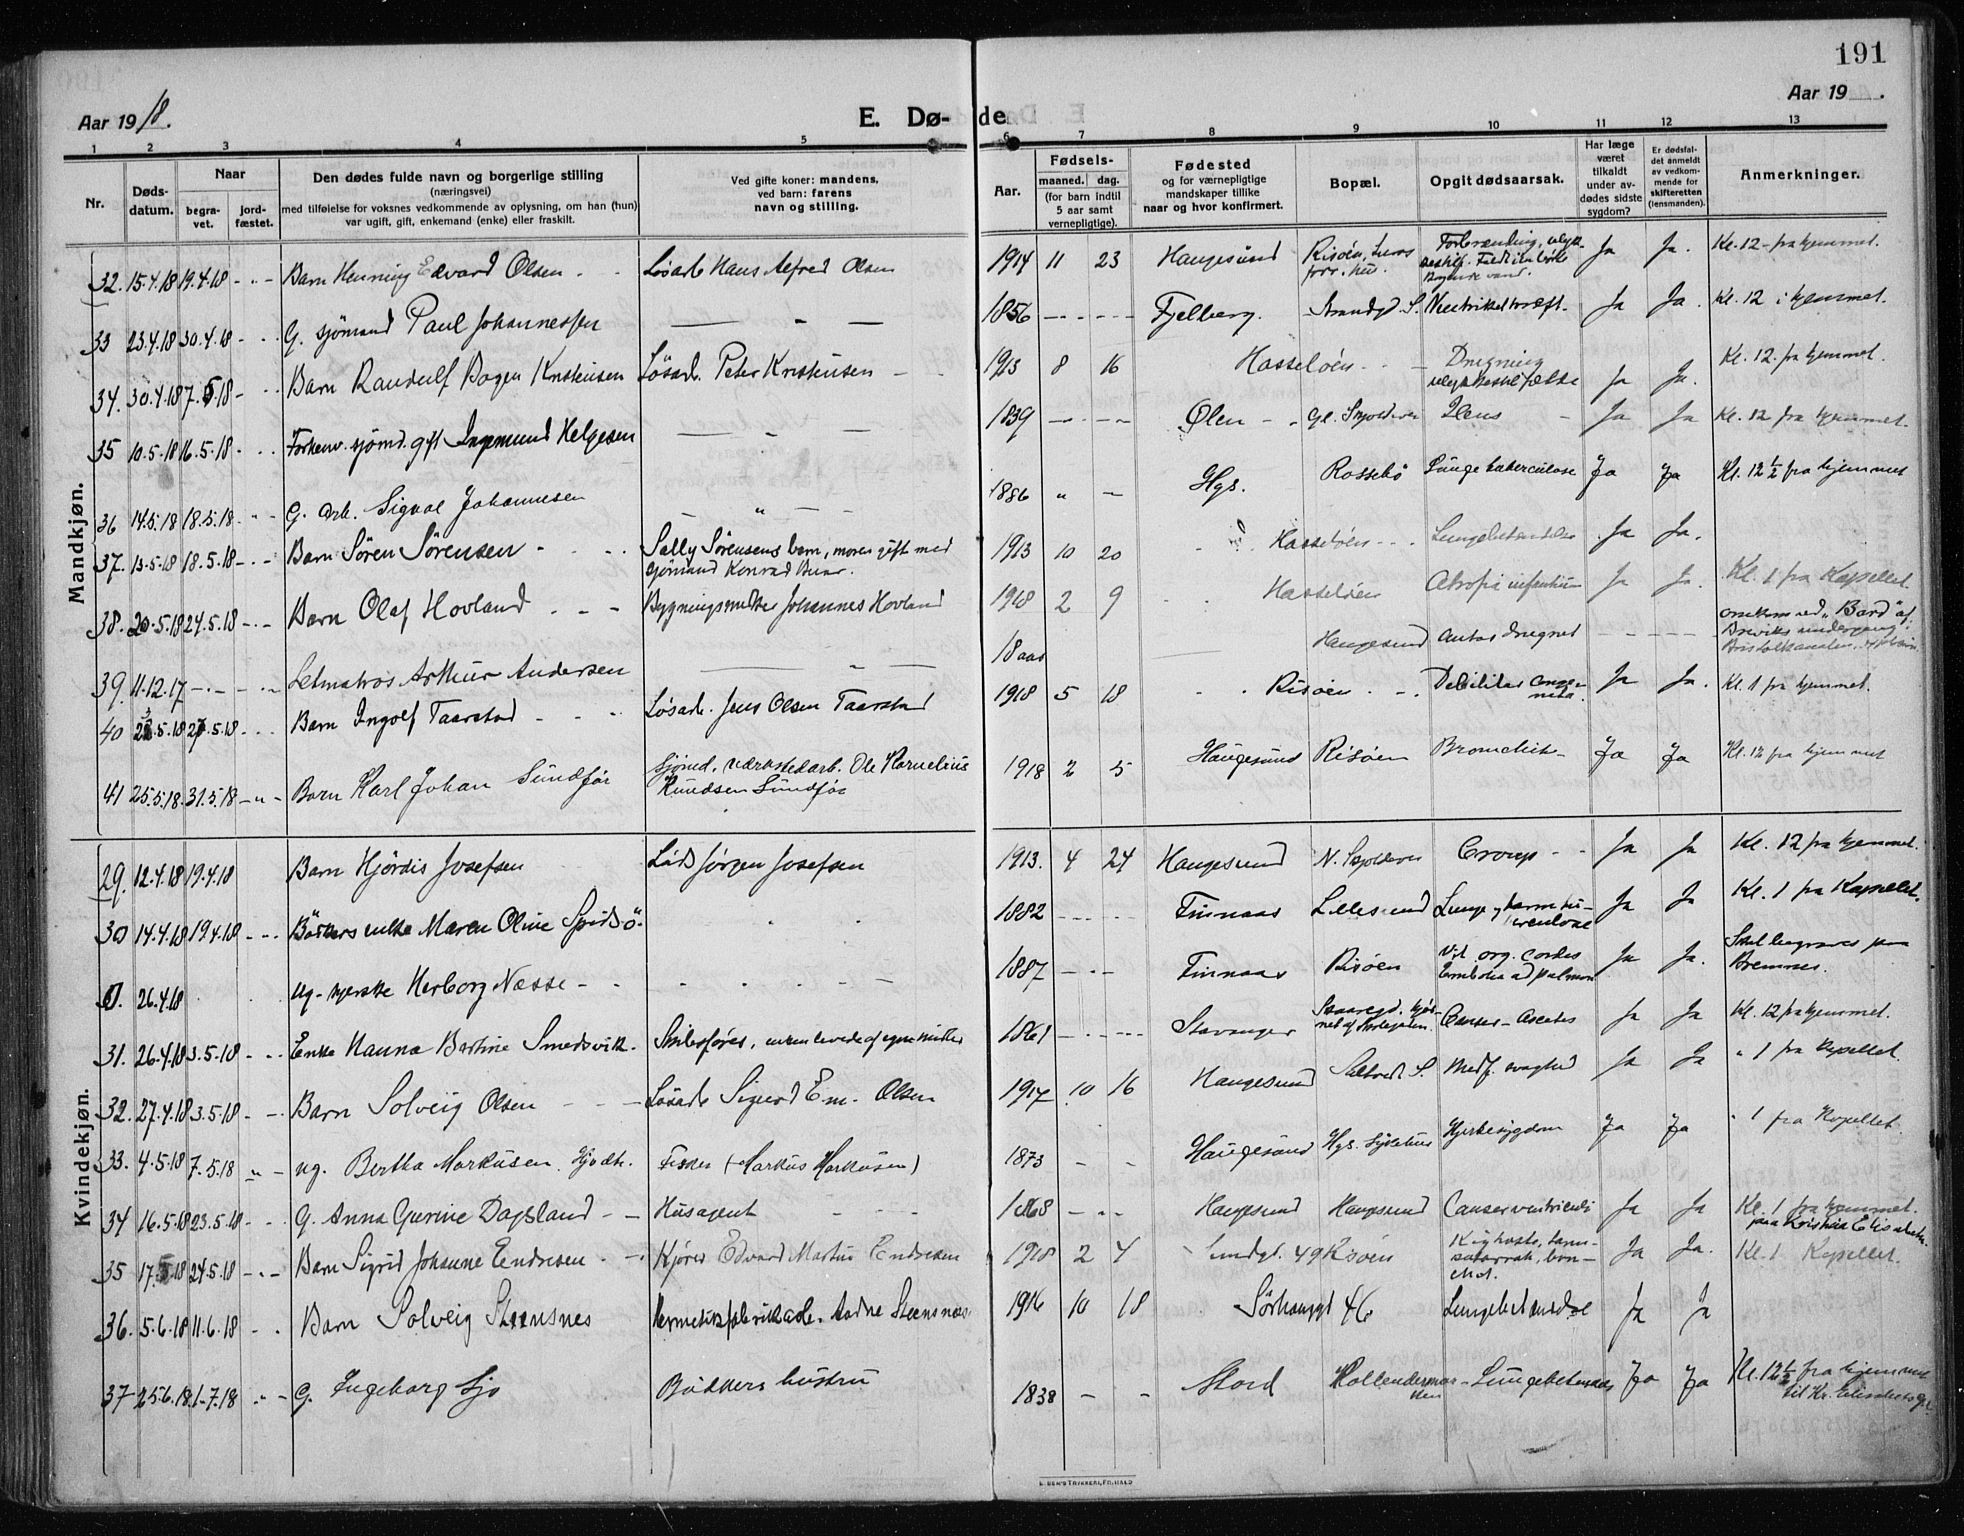 191
Aar 1918.
E. Dø- de
Aar 19
1 2 3 4 5 6 7 8 9 10 11 12 13
Nr.
Døds-
datum.
Naar
begra-
vet.
jord-
fæstet.
Den dødes fulde navn og borgerlige stilling
(næringsvei)
med tilføielse for voksnes vedkommende av oplysning, om han (hun)
var ugift, gift, enkemand (enke) eller fraskilt.
Ved gifte koner: mandens,
ved barn: farens
navn og stilling.
Aar.
Fødsels-
maaned. dag.
(for barn indtil
5 aar samt
vernepligtige).
Fødested
og for værnepligtige
mandskaper tillike
naar og hvor konfirmert.
Bopæl.
Opgit dødsaarsak.
Har læge
været
tilkaldt
under av-
dødes sidste
sygdom?
Er dødsfal-
det anmeldt
av vedkom-
mende for
skifteretten
(lensmanden).
Anmerkninger.
Mandkjøn.
32. 15.4.18 19.4.18 Barn Henning Edvard Olsen Løsarb. Hans Alfred Olsen 1914 11 23 Haugesund Risøen, Ja Ja. Kl. 12 fra hjemmet.
33 23.4.18 30.4.18 G. sjømand Paul Johannessen 1856 Fjelberg. Strandgt S. Ja Ja. Kl. 12 i hjemmet.
34. 30.4.18 7.5.18 Barn Randulf Bogen Kristensen Løsarb. Peter Kristensen 1913 8 16 Hasseløen Drugning Ja Ja. Kl. 12. fra hjemmet.
35 10.5.18 16.5.18 Forhenv. sjømd. gift Ingemund Helgesen 1839 Ølen Gl. Skjolderv Ileus Ja Ja Kl. 12 fra hjemmet.
36 14.5.18 18.5.18 G. arb. Sigval Johannesen 1886 Hgs. Rossebø Lungetuberculose Ja Ja Kl. 12 1/2 fra hjemmet
37. 13.5.18 18.5.18 Barn Søren Sørensen Sally Sørensens barn, moren gift med
sjømand Konrad 1913 10 20 Hasseløen Lungebetændelse Ja Ja.
38. 20.5.18 24.5.18 Barn Olaf Hovland Bygningssnekker Johannes Hovland 1918 2 9 Hasseløen Atrofi infantium Ja Ja. Kl. 1 fra Kapellet.
39. 11.12.17 Letmatros Arthur Andersen 18 aar Haugesund antas druknet omkom med "Bard" af
Breviks undergang i
Bristolkanalen.
40 23.5.18 27.5.18 Barn Ingolf Taarstad Løsarb. Jens Olsen Taarstad 1918 5 18 Risøen Debilitas conge-
nita Ja Ja. Kl. 1 fra hjemmet.
41 25.5.18. 31.5.18 Barn Karl Johan Sundfør sjømd. værkstedarb. Ole Kornelius
Knudsen Sundfør 1918 2 5 Haugesund Risøen Bronchit Ja Ja Kl. 12 fra hjemmet
Kvindekjøn.
29. 12.4.18 19.4.18 Barn Hjørdis Josefsen Lods Jørgen Josefsen 1913. 4 24 Haugesund N. Skjolderv Croup Ja Ja Kl. 12 fra hjemmet.
30 14.4.18 19.4.18 Bøkkers enke Maren Oline Spidsø 1882 Finnaas Lillesund Lunge og tarmtu-
berculose Ja Ja Kl. 1 fra Kapellet.
26.4.18 ug. Herborg Næsse 1887 Finnaas Risøen Vit. org. cordis
Embolia ad pulmon Ja Ja. Skal begraves paa
Bremnes.
31. 26.4.18 3.5.18 Enke Hanna Bertine Smedsvik. 1861 Stavanger Cancer Ascites Ja Ja Kl. 12 fra hjemmet.
32. 27.4.18 3.5.18 Barn Solveig Olsen Løsarb Sigurd Em. Olsen 1917 10 16 Haugesund Medf. svaghed Ja Ja " 1 fra Kapellet.
33. 4.5.18 7.5.18 ug. Bertha Markusen Fisker (Markus Markusen) 1873 Haugesund Hgs. Sykehus Hjertesygdom Ja Ja " 1 fra Kapellet.
34 16.5.18 23.5.18 G. Anna Gurine Dagsland Husagent 1868 Haugesund Haugesund Cancer ventriculi Ja Ja Kl. 1 fra hjemmet.
35 17.5.18 24.5.18 Barn Sigrid Johanne Endresen Kjører Edvard Martin Endresen 1918 2 4 49 Risøen Kighoste, tarm-
katarrah, bron-
chit. Ja Ja. Kl. 1 Kapellet.
36. 5.6.18 11.6.18 Barn Solveig Steensnes Hermetikfabrikarb. Aadne Steensnes 1916 10 18 Sørhauggt 46 Lungebetændelse Ja Ja
37 25.6.18. 1.7.18 G. Ingeborg Sjo Bødkers hustru 1838 Stord Lungebetændelse Ja Ja Kl. 12 1/2 fra hjemmet